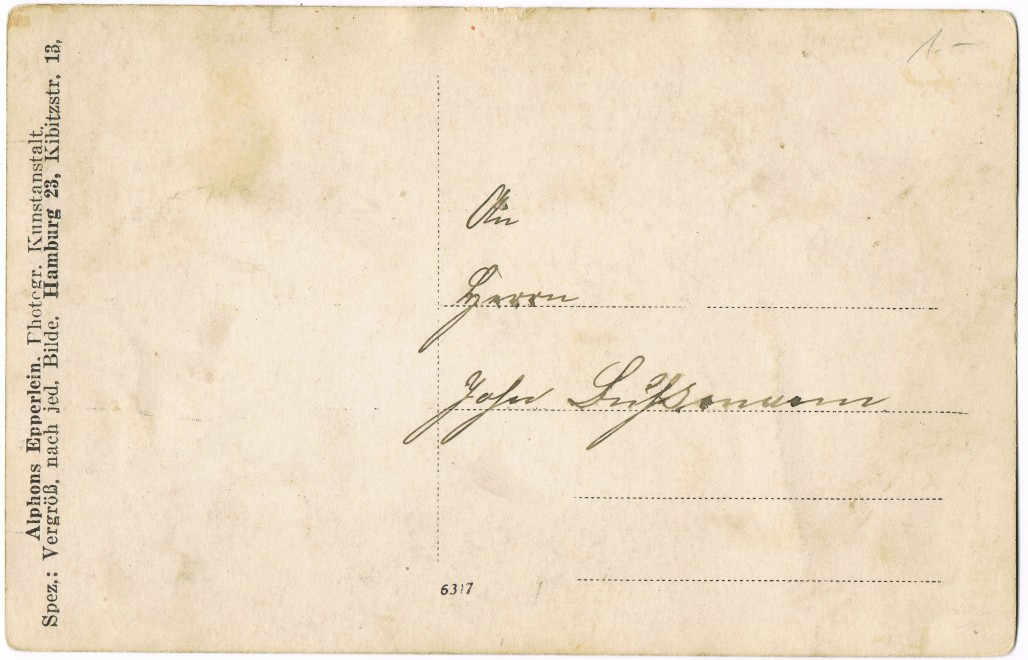 Alphons Epperlein. Photogr. Kunstanstalt.
Spez.: Vergröß. nach jed. Bilde. Hamburg 23, Kibitzstr. 13,
An
Herrn
John
6317